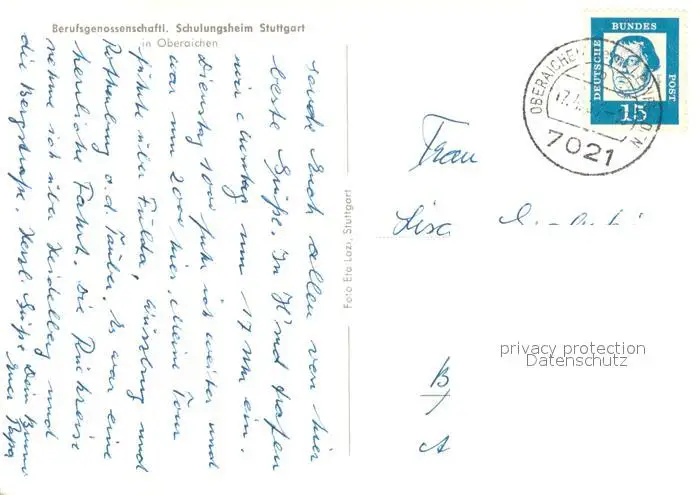 Berufsgenossenschaftl. Schulungsheim Stuttgart
in Oberaichen
sende Euch allen von hier
beste Grüße. In H'und trafen
wir Dienstag um 17 Uhr ein.
Dienstag 1000 fuhr ich weiter und
war um 2000 hier. Meine Tour
führte über Fulda, Würzburg und
Rothenburg o.d. Tauber. Es war eine
herrliche Fahrt. Die Rückreise
nehme ich über Heidelberg und
die Bergstraße. Herzl. Grüße Dein
Euer Papa
Foto Eta Lazi, Stuttgart
DEUTSCHE BUNDES POST
15
OBERAICHEN
7021
Frau
Lisa
privacy protection
Datenschutz
B
A